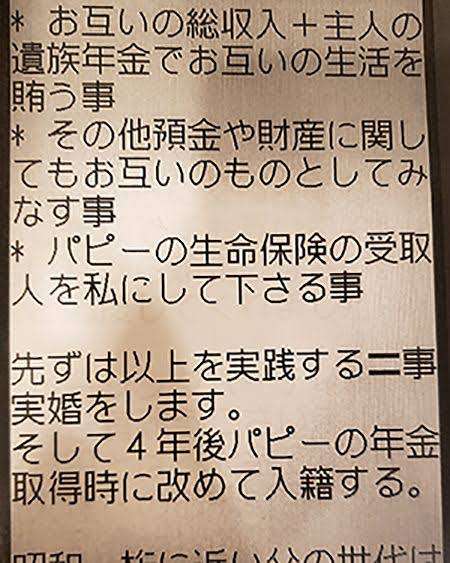 * お互いの総収入＋主人の
遺族年金でお互いの生活を
賄う事
* その他預金や財産に関し
てもお互いのものとしてみ
なす事
* パピーの生命保険の受取
人を私にして下さる事
先ずは以上を実践する＝事
実婚をします。
そして４年後パピーの年金
取得時に改めて入籍する。
昭和一桁に近い父の世代は